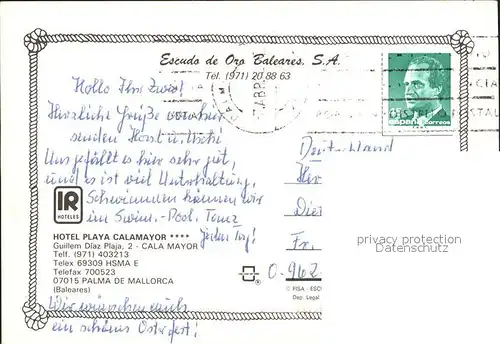 Escudo de Oro Baleares. S.A.
Tel. (971) 20 88 63
Hallo Ihr Zwei!
Herzliche Grüße von hier
senden Horst u.
Uns gefällt es hier sehr gut,
und es ist viel Unterhaltung,
Schwimmen können wir
im Swim.-Pool. Tanz
jeden Tag!
IR
HOTELES
HOTEL PLAYA CALAMAYOR ****
Guillem Díaz Plaja, 2 - CALA MAYOR
Telf. (971) 403213
Telex 69309 HSMA E
Telefax 700523
07015 PALMA DE MALLORCA
(Baleares)
Wir wünschen euch
ein schönes Osterfest!
España correos
POSTAL
Deutschland
Dies
Fr.
O-962
privacy protection
Datenschutz
© FISA - ESC
Dep. Legal